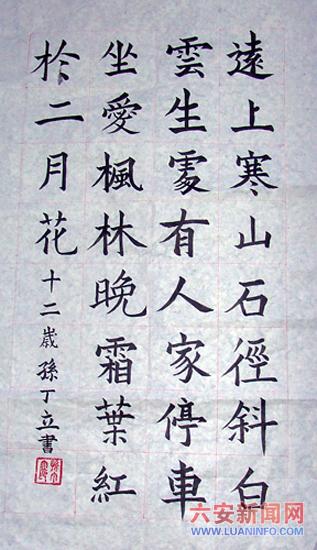 遠上寒山石徑斜白
雲生處有人家停車
坐愛楓林晚霜葉紅
於二月花
十二歲孫丁立書
六安新闻网
WWW.LUANINFO.COM